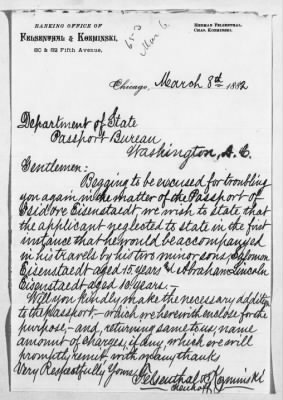 BANKING OFFICE OF
FELSENTHAL & KOZMINSKI,
80 & 82 Fifth Avenue,
HERMAN FELSENTHAL.
CHAS. KOZMINSKI.
Chicago, March 8th 1882
Department of State
Passport Bureau
Washington, D.C.
Gentlemen:
Begging to be excused for troubling
you again in the matter of the Passport of
Isidore Eisenstaedt, we wish to state that
the applicant neglected to state in the first
instance that he would be accompanied
in his travels by his two minor sons, Salomon
Eisenstaedt aged 15 years & Abraham Lincoln
Eisenstaedt aged 16 years.
Will you kindly make the necessary addition
to the passport — which we herewith enclose for the
purpose, — and, returning same to us, name
amount of charges, if any, which we will
promptly remit with many thanks
Very Respectfully Yours,
Felsenthal & Kozminski